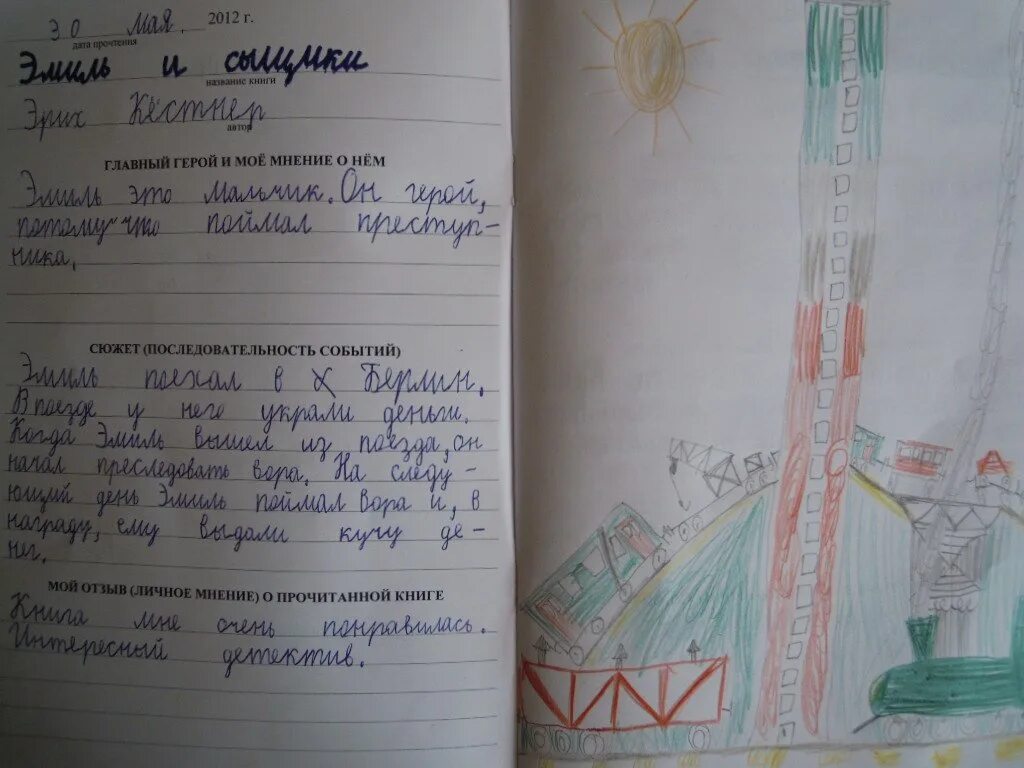 30 мая 2012 г.
дата прочтения
Эмиль и сыщики
название книги
Эрих Кёстнер
автор
ГЛАВНЫЙ ГЕРОЙ И МОЁ МНЕНИЕ О НЁМ
Эмиль это мальчик. Он герой,
потому что поймал преступ-
ника.
СЮЖЕТ (ПОСЛЕДОВАТЕЛЬНОСТЬ СОБЫТИЙ)
Эмиль поехал в Берлин.
В поезде у него украли деньги.
Когда Эмиль вышел из поезда, он
начал преследовать вора. На следу-
ющий день Эмиль поймал вора и, в
награду, ему выдали кучу де-
нег.
МОЙ ОТЗЫВ (ЛИЧНОЕ МНЕНИЕ) О ПРОЧИТАННОЙ КНИГЕ
Книга мне очень понравилась.
Интересный детектив.